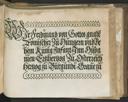 Wir Ferdinand von Gottes gnadē
Romischer zu Hungern und Be
hem König Infant Inn Hispa
nien Ertzhertzog zu Osterreich
Hertzog zu Burgundi